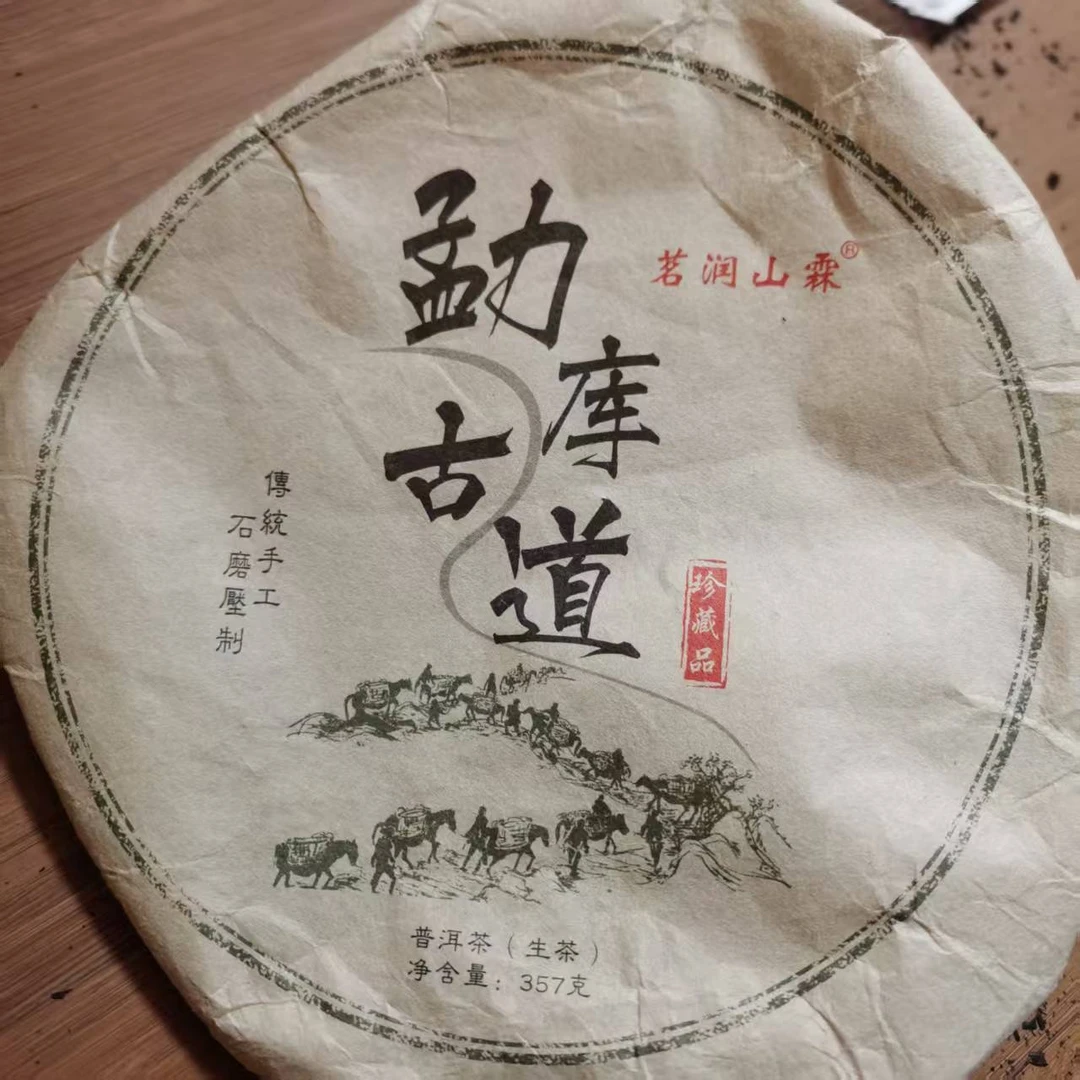 勐库古道
茗润山霖®
傳統手工
石磨壓制
珍藏品
普洱茶（生茶）
净含量：357克